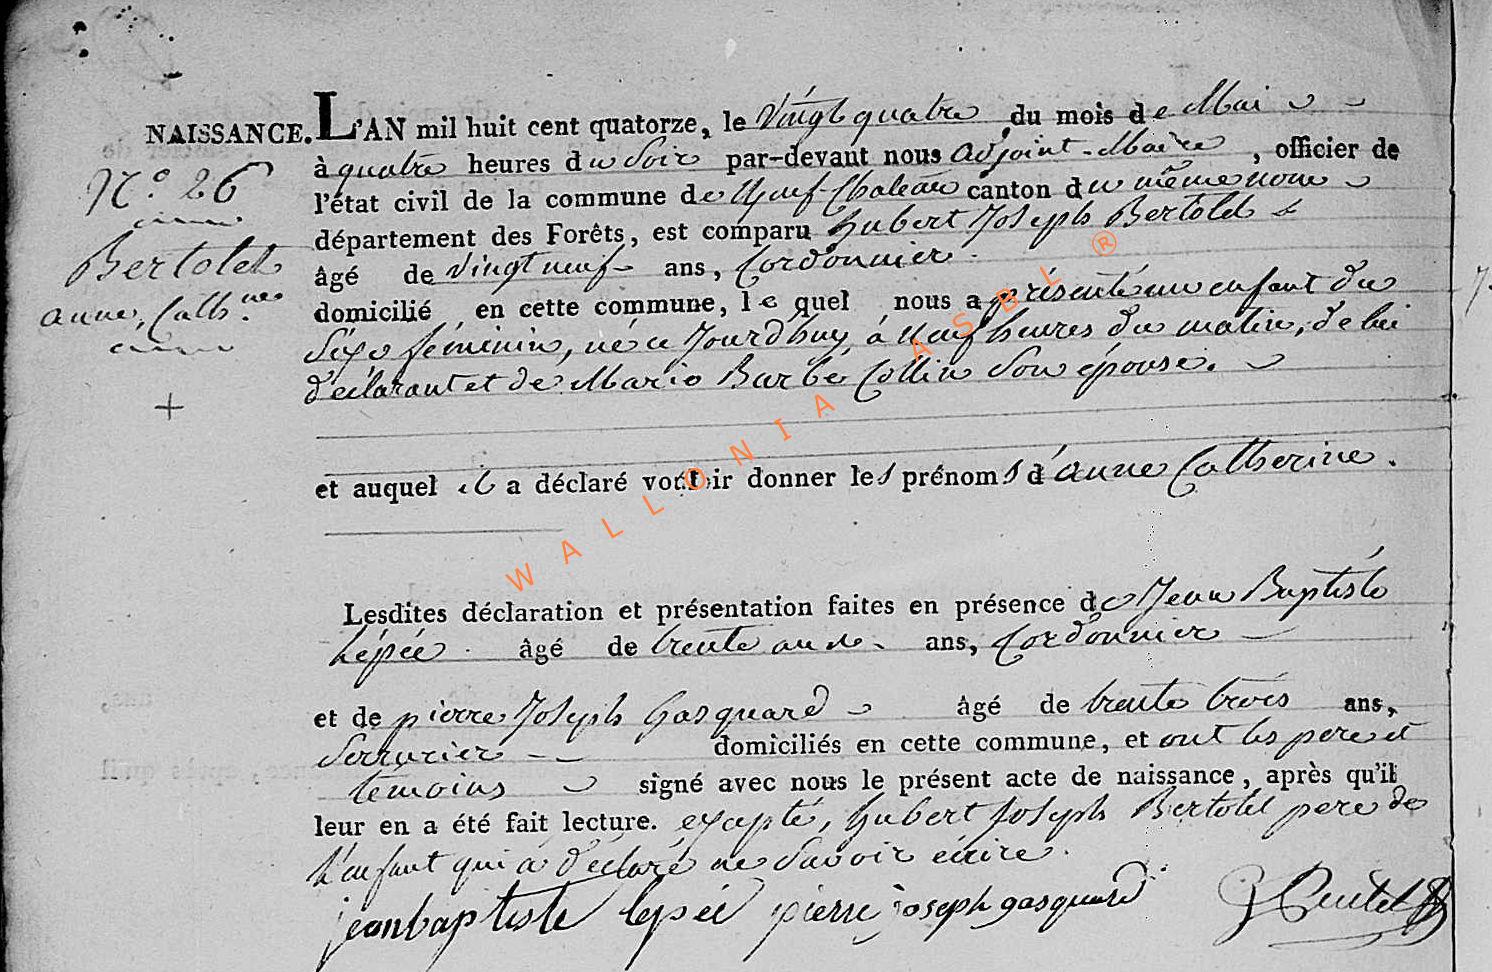 NAISSANCE. L'AN mil huit cent quatorze, le Vingt quatre du mois de Mai
à quatre heures du Soir par-devant nous adjoint-Maire, officier de
N.° 26
l'état civil de la commune de Neuf Chateau canton du même nom
département des Forêts, est comparu hubert Joseph Bertolet
Bertolet
âgé de Vingt neuf ans, Cordonnier.
anne, Cath.ne
domicilié en cette commune, le quel nous a présenté un enfant du
Sexe féminin, né ce Jourd'huy, à Neuf heures du matin, de lui
déclarant et de Marie Barbe Collin Son épouse.
+
et auquel il a déclaré vouloir donner les prénoms d'anne Catherine.
Lesdites déclaration et présentation faites en présence de Jean Baptiste
Lépée. âgé de trente ans, Cordonnier
et de pierre Joseph Gasquard âgé de trente trois ans,
Serrurier domiciliés en cette commune, et ont les pere et
temoins signé avec nous le présent acte de naissance, après qu'il
leur en a été fait lecture. excepté, hubert Joseph Bertolet pere de
L'enfant qui a déclaré ne Savoir écrire.
jean baptiste lepée pierre joseph gasquard
WALLONIA ASBL ®